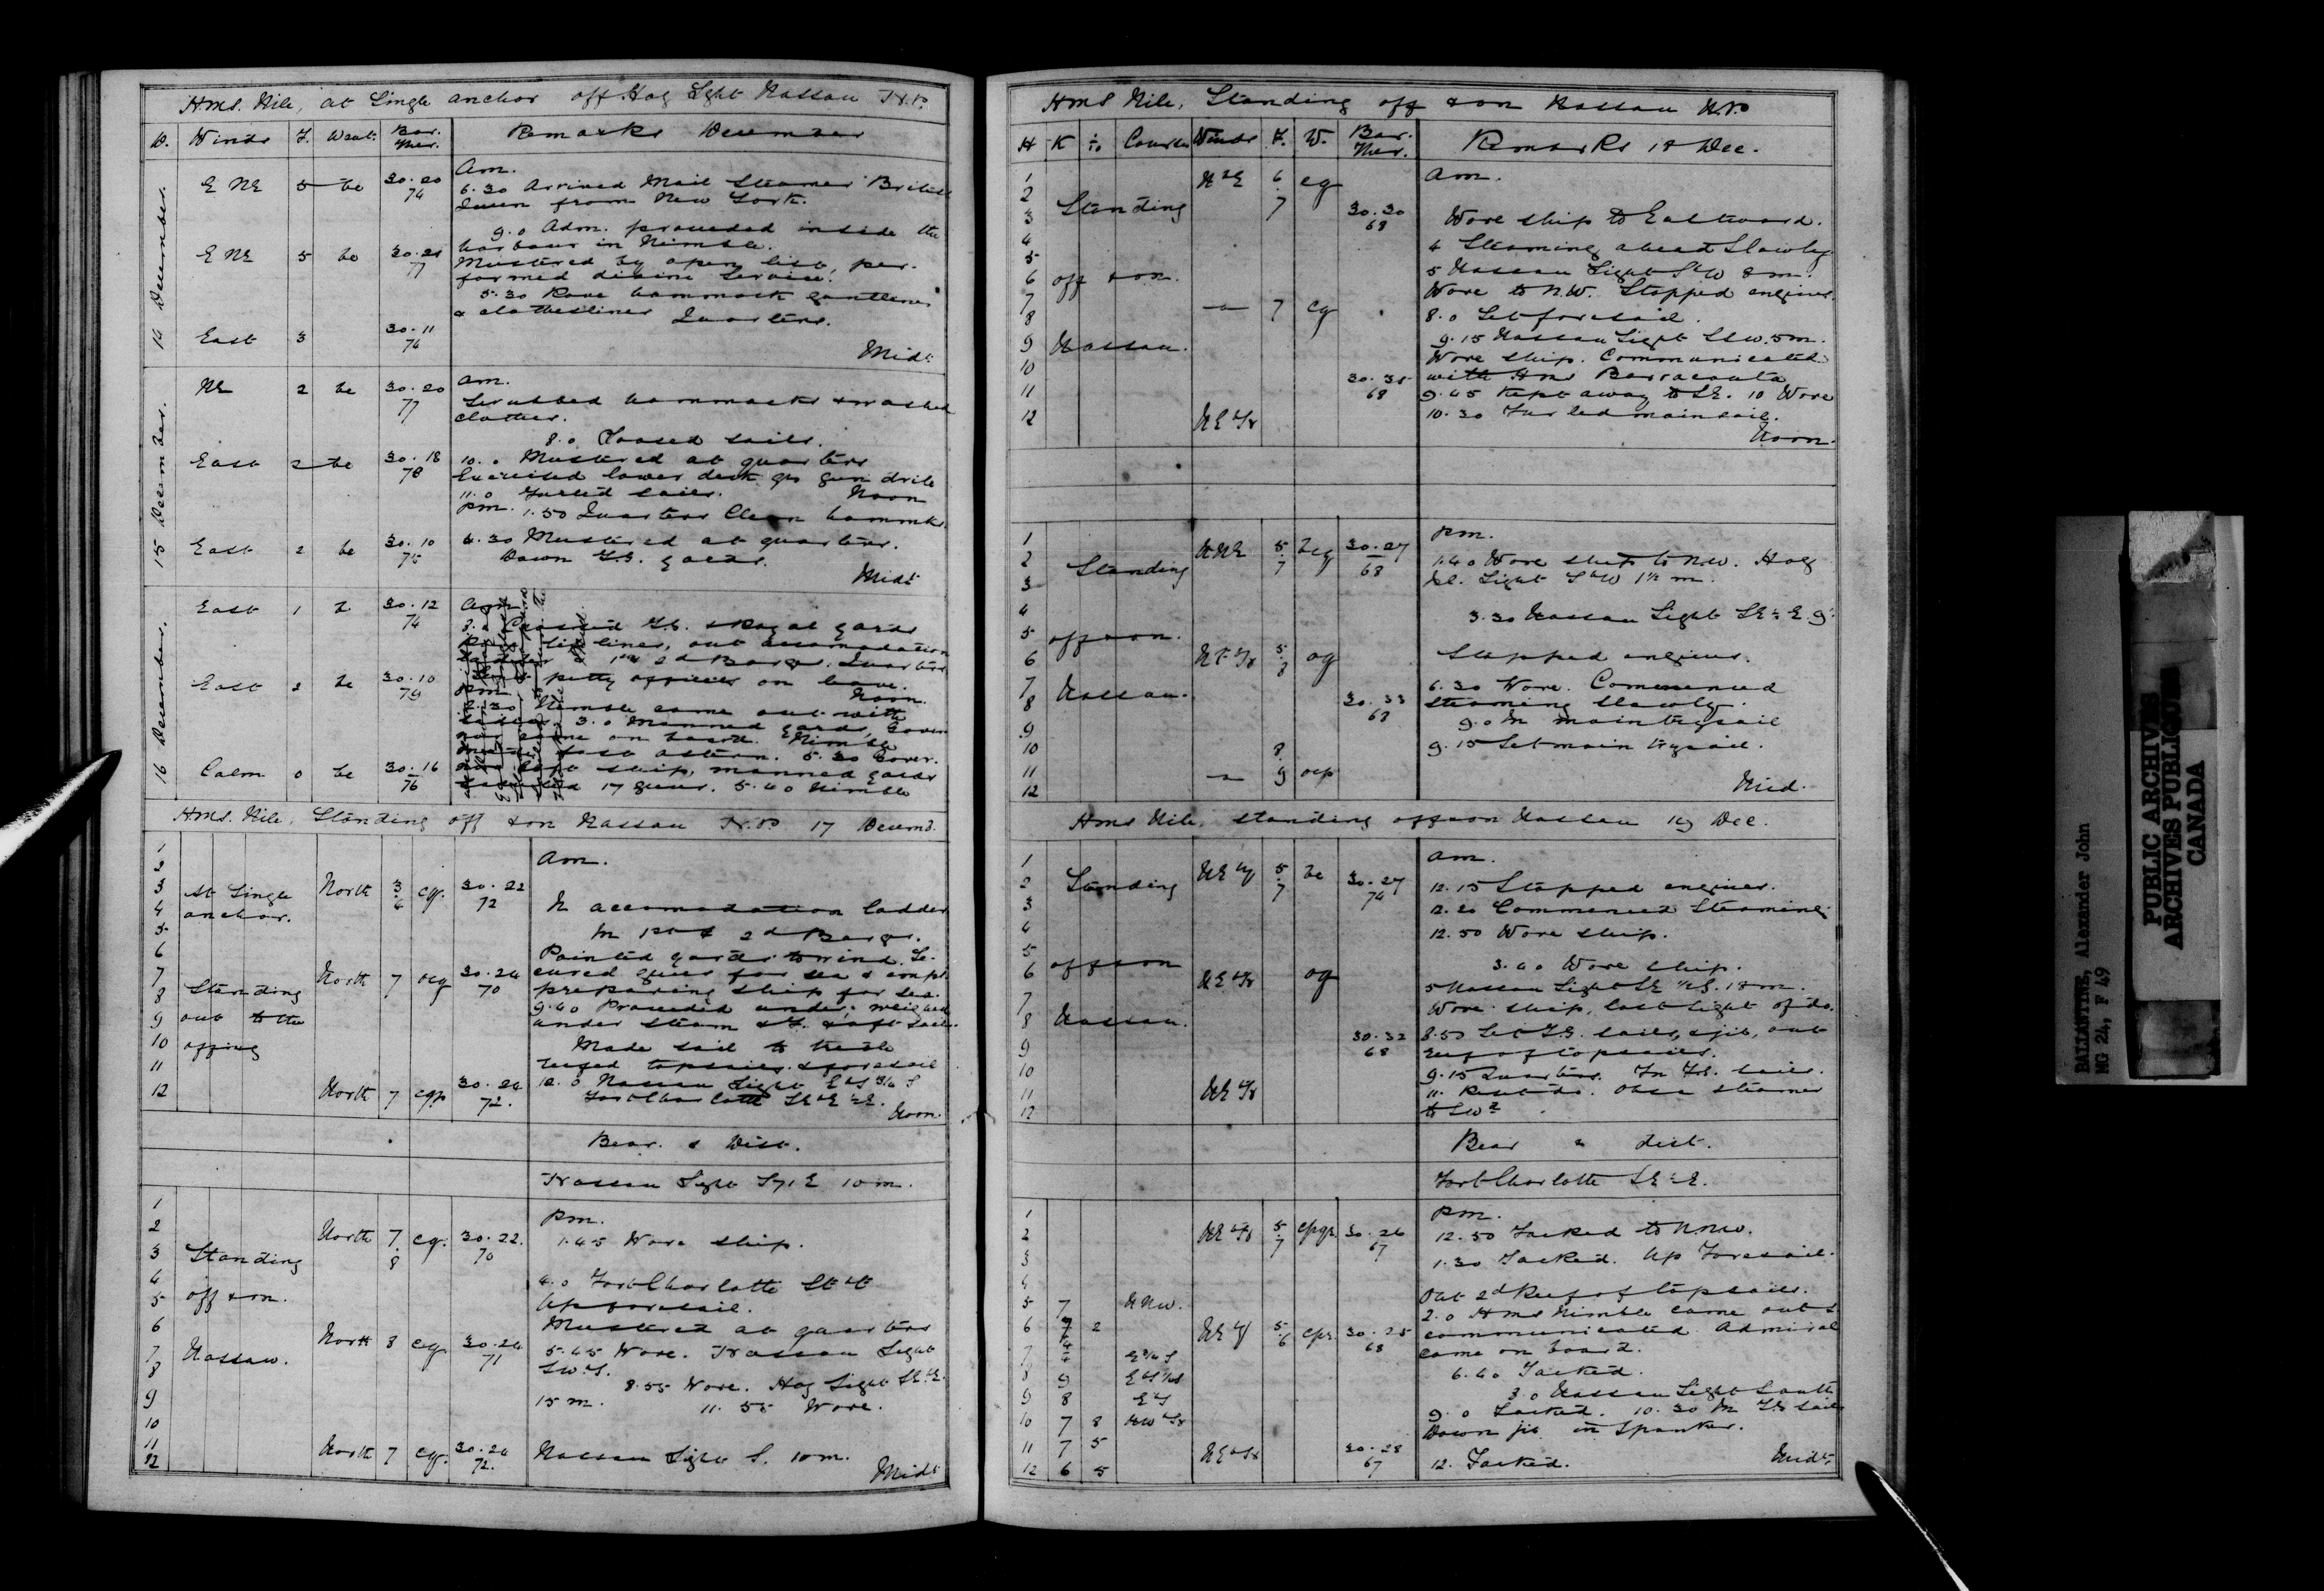 H.M.S. Nile, at Single anchor off Hog Light Nassau N.P.
D. Winds F. Weat. Bar. Ther. Remarks December
14 December.
Am.
E NE 5 bc 30.20 74
6.30 Arrived Mail Steamer British
Queen from New York.
9.0 Adm. proceeded inside the
harbour in Nimble.
E NE 5 bc 30.21 77
Mustered by open list, per-
formed divine Service.
5.30 Rove hammock gantlines
& clotheslines Quarters.
East 3 30.11 76
Midt
15 December.
NE 2 bc 30.20 77
am.
Scrubbed hammocks & washed
clothes.
8.0 Loosed sails.
East 2 bc 30.18 78
10.0 Mustered at quarters
Exercised lower deck qrs gun drill
11.0 Furled sails. Noon
pm. 1.50 Quarters Clean hammks.
East 2 bc 30.10 75
4.30 Mustered at quarters.
Down T.G. yards.
Midt
16 December.
East 1 b 30.12 74
Am
8.0 Crossed T.G. & Royal yards
lines, out accomodation
1st & 2d Barge. Quarters
East 2 bc 30.10 79
petty officers on leave.
pm Noon.
Nimble came out with
3.0 Manned yards, Gover
came on board. Nimble
fast astern. 5.30 Gover.
Calm 0 bc 30.16 76
left ship, manned yards
17 guns. 5.40 Nimble
H.M.S. Nile, Standing off & on Nassau N.P. 17 Decemr.
1
2
3 At Single North 3/4 cg. 30.22 72
4 anchor.
5
6
7 North 7 ocg 30.24 70
8 Standing
9 out to the
10 offing
11
12 North 7 cgp 30.24 72.
Am.
In accomodation ladder
In 1st & 2d Barge.
Pointed yards to wind. Se-
cured guns for sea & empd
preparing ship for sea.
9.40 Proceeded under; weighed
under steam & F. & aft sails.
Made sail to treble
reefed topsails & foresail
12.0 Nassau Light EbS 3/4 S
Fort Charlotte SEbE ½E.
Noon.
Bear. & Dist.
Nassau Light S71E 10m.
1
2 North 7/8 cg. 30.22. 70
3 Standing
4
5 off & on.
6
7 Nassau. North 8 cg 30.24 71
8
9
10
11 North 7 cg. 30.24 72.
12
Pm.
1.45 Wore ship.
4.0 Fort Charlotte
Up foresail.
Mustered at quarters
5.45 Wore. Nassau Light
SWbS.
8.55 Wore. Hog Light SEbE.
15 m. 11.55 Wore.
Nassau Light S. 10m.
Midt
HMS Nile, Standing off & on Nassau N.P
H K 1/10 Course Winds F. W. Bar. Ther. Remarks 18 Dec.
1 NbE 6/7 cg
2
3 Standing 30.30 68
4
5
6 off & on.
7 " 7 cg
8
9 Nassau.
10
11 68
12 NEbN
Am.
Wore ship to Eastward.
4 Steaming ahead Slowly
5 Nassau Light SbW 8m.
Wore to N.W. Stopped engines.
8.0 Set foresail.
9.15 Nassau Light SSW. 5m.
Wore ship. Communicated
with HMS Barracouta
9.45 Kept away to SE. 10 Wore
10.30 Furled mainsail.
Noon.
1
2 NNE 5/7 bcg 30.27 68
3 Standing
4
5 off & on.
6 NEbN og
7 Nassau.
8 30.33 68
9
10
11 " 8/9 ocp
12
Pm.
1.40 Wore ship to NW. Hog
Isl. Light SbW 1½ m.
3.30 Nassau Light SE½E. 9'.
Stopped engines.
6.30 Wore. Commenced
steaming slowly.
9.0 In main trysail
9.15 Set main trysail.
Mid.
HMS Nile, standing off & on Nassau 19 Dec.
1 5/7 bc
2 Standing 30.27 74
3
4
5
6 off & on NEbN og
7
8 Nassau.
9 30.32 68
10
11 NEbN
12
Am.
12.15 Stopped engines.
12.20 Commenced Steaming.
12.50 Wore ship.
3.40 Wore ship.
5 Nassau Light SE ½S. 18m.
Wore ship, lost Light of do.
8.50 Set T.G. sails, & jib, out
reef of topsails.
9.15 Quarters. In T.G. sails.
11. Reset do. Obsd steamer
to SWd
Bear & dist.
Fort Charlotte SE½E.
1
2 NEbN 5/7 cpqr 30.26 67
3
4
5 7 NNW.
6 7/4 2 5/6 cpq 30.25 68
7 4 E¾S
8 9
9 8 EbS
10 7 8 NWbN
11 7 5 NEbN 30.28 67
12 6 5
Pm.
12.50 Tacked to NNW.
1.30 Tacked. Up Foresail.
Out 2d Reef of topsails.
2.0 HMS Nimble came out &
communicated. Admiral
came on board.
6.40 Tacked.
8.0 Nassau Light South
9.0 Tacked. 10.30 In TG Sails
Down jib in Spanker.
12. Tacked. Midt.
BALLANTINE, Alexander John
MG 24, F 49
PUBLIC ARCHIVES
ARCHIVES PUBLIQUES
CANADA